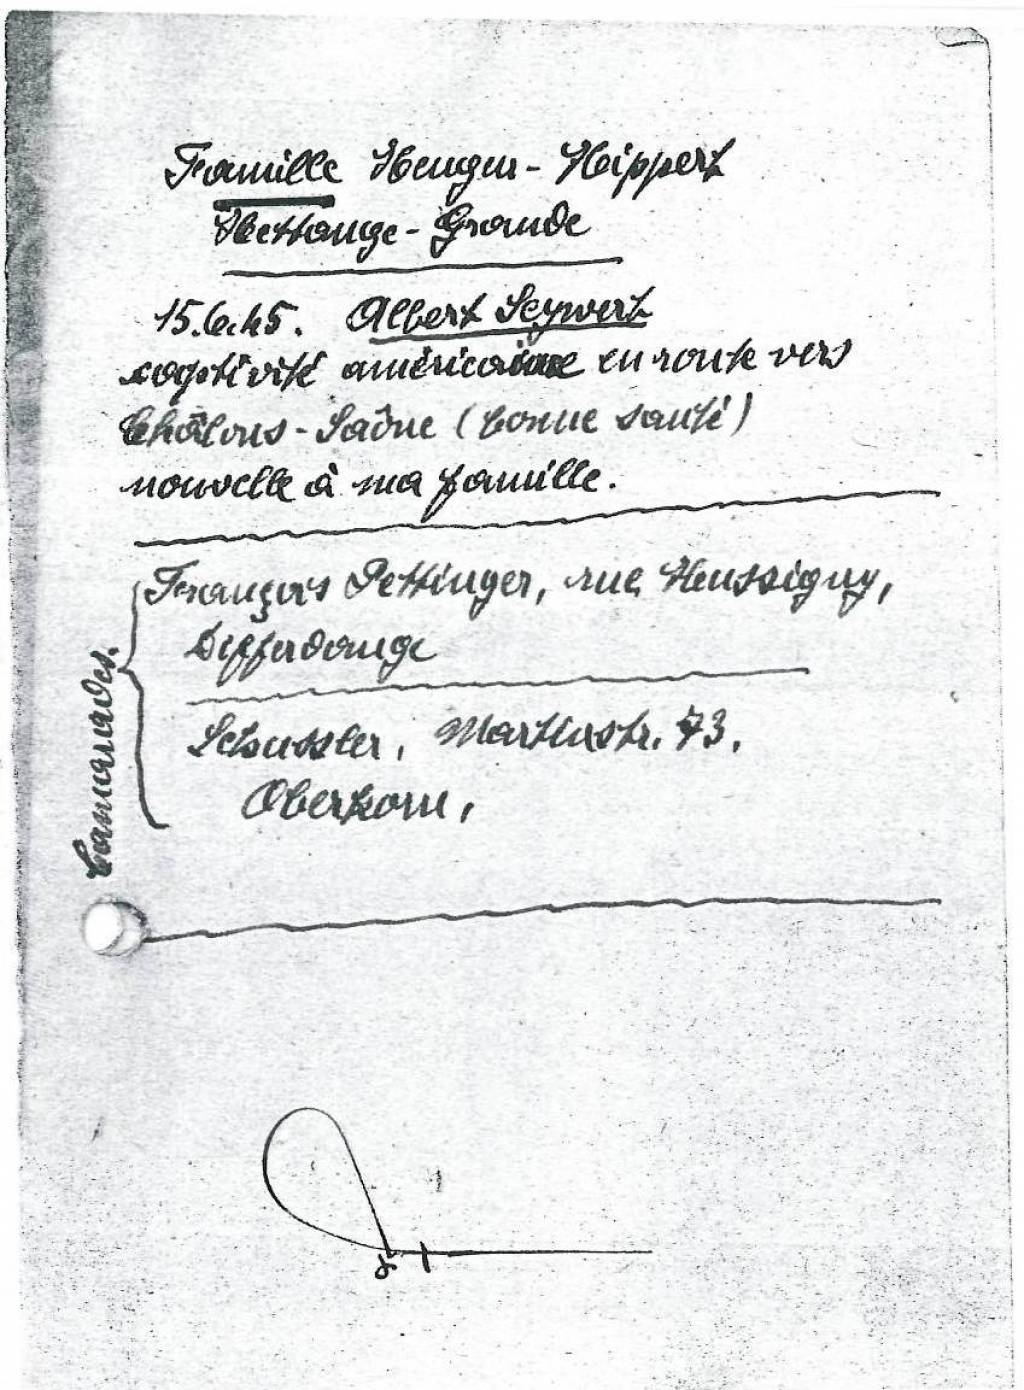 Famille Henger-Hippert
Hettange-Grande
15.6.45. Albert Seywert
captivité américaine en route vers
Châlons-Saône (bonne santé)
nouvelle à ma famille.
Camarades.
François Pettinger, rue Hussigny,
Differdange
Schussler, Martinstr. 73.
Oberkorn,